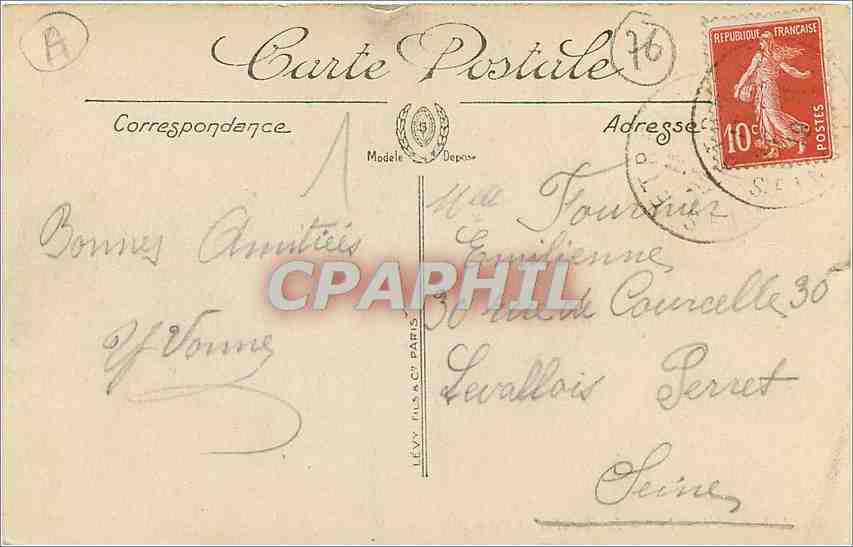 A
76
Carte Postale
RÉPUBLIQUE FRANÇAISE
10c
POSTES
Correspondance
Adresse
Modèle Déposé
1
Bonnes Amitiés
Yvonne
Melle Fournier
Emilienne
30 rue de Courcelle 30
Levallois Perret
Seine
LÉVY FILS & Cie PARIS
CPAPHIL